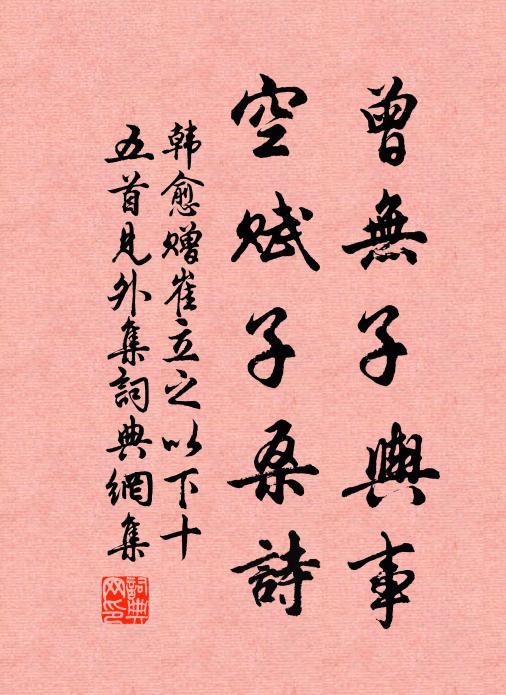 曾無子輿事
空賦子桑詩
韓愈贈崔立之以下十
五首見外集詞典網集
詞典
网印